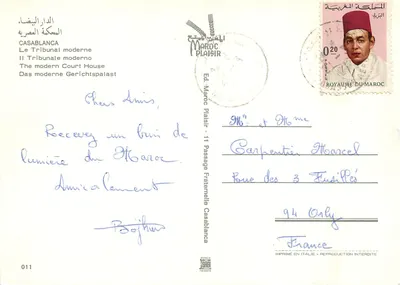 الدار البيضاء
المحكمة العصرية
CASABLANCA
Le Tribunal moderne
Il Tribunale moderno
The modern Court House
Das moderne Gerichtspalast
Chers Amis,
Recevez un brin de
lumière du Maroc
Amicalement
011
MAROC
PLAISIR
Ed. Maroc Plaisir - 11 Passage Fraternelle Casablanca
المملكة المغربية
البريد
0,20
ROYAUME DU MAROC
Mr et Mme
Carpentier Marcel
Rue des 3 Fusillés
94 Orly
France
IMPRIMÉ EN ITALIE - REPRODUCTION INTERDITE